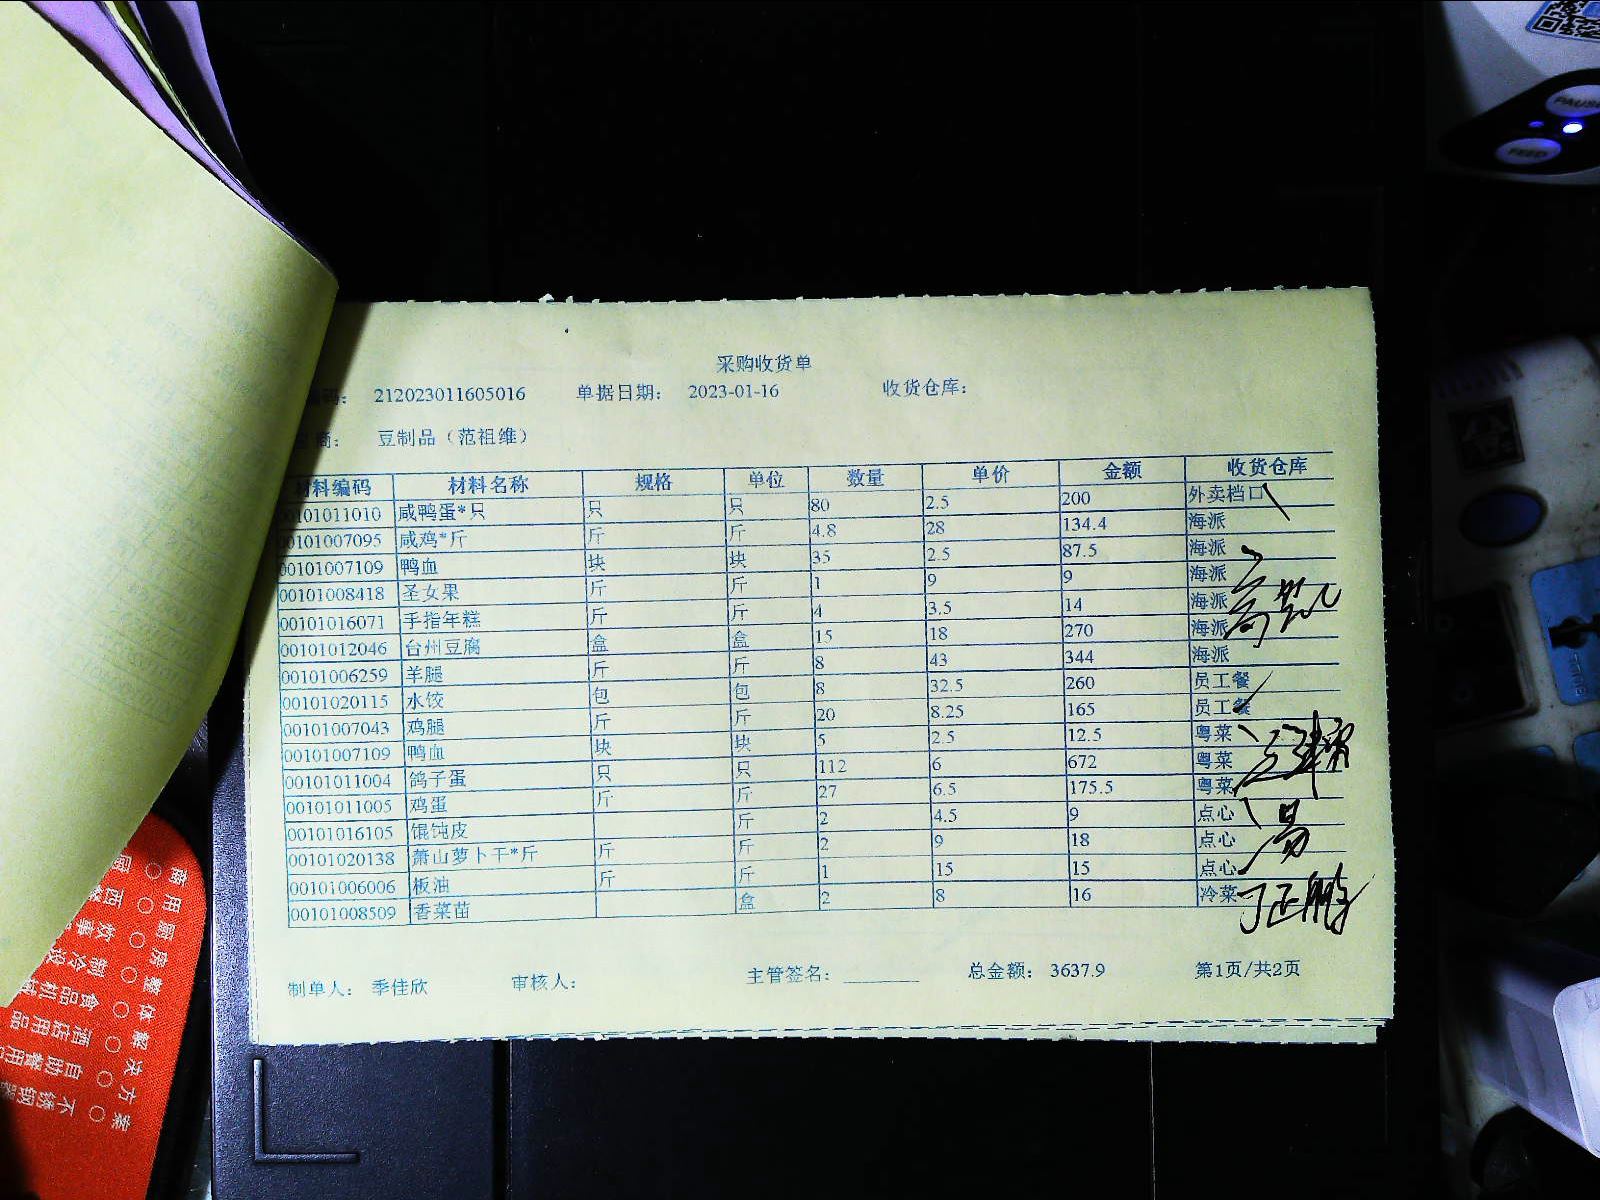 采购收货单
码： 212023011605016 单据日期： 2023-01-16 收货仓库：
商： 豆制品（范祖维）
材料编码 材料名称 规格 单位 数量 单价 金额 收货仓库
00101011010 咸鸭蛋*只 只 只 80 2.5 200 外卖档口
00101007095 咸鸡*斤 斤 斤 4.8 28 134.4 海派
00101007109 鸭血 块 块 35 2.5 87.5 海派
00101008418 圣女果 斤 斤 1 9 9 海派
00101016071 手指年糕 斤 斤 4 3.5 14 海派
00101012046 台州豆腐 盒 盒 15 18 270 海派
00101006259 羊腿 斤 斤 8 43 344 海派
00101020115 水饺 包 包 8 32.5 260 员工餐
00101007043 鸡腿 斤 斤 20 8.25 165 员工餐
00101007109 鸭血 块 块 5 2.5 12.5 粤菜
00101011004 鸽子蛋 只 只 112 6 672 粤菜
00101011005 鸡蛋 斤 斤 27 6.5 175.5 粤菜
00101016105 馄饨皮 斤 2 4.5 9 点心
00101020138 萧山萝卜干*斤 斤 斤 2 9 18 点心
00101006006 板油 斤 斤 1 15 15 点心
00101008509 香菜苗 盒 2 8 16 冷菜
丁正鹏
制单人： 季佳欣 审核人： 主管签名： 总金额： 3637.9 第1页/共2页
PAUSE
FEED
商用厨房整体解决方案
制冷设
食品机械
酒店用品
自助餐用品
不锈钢器